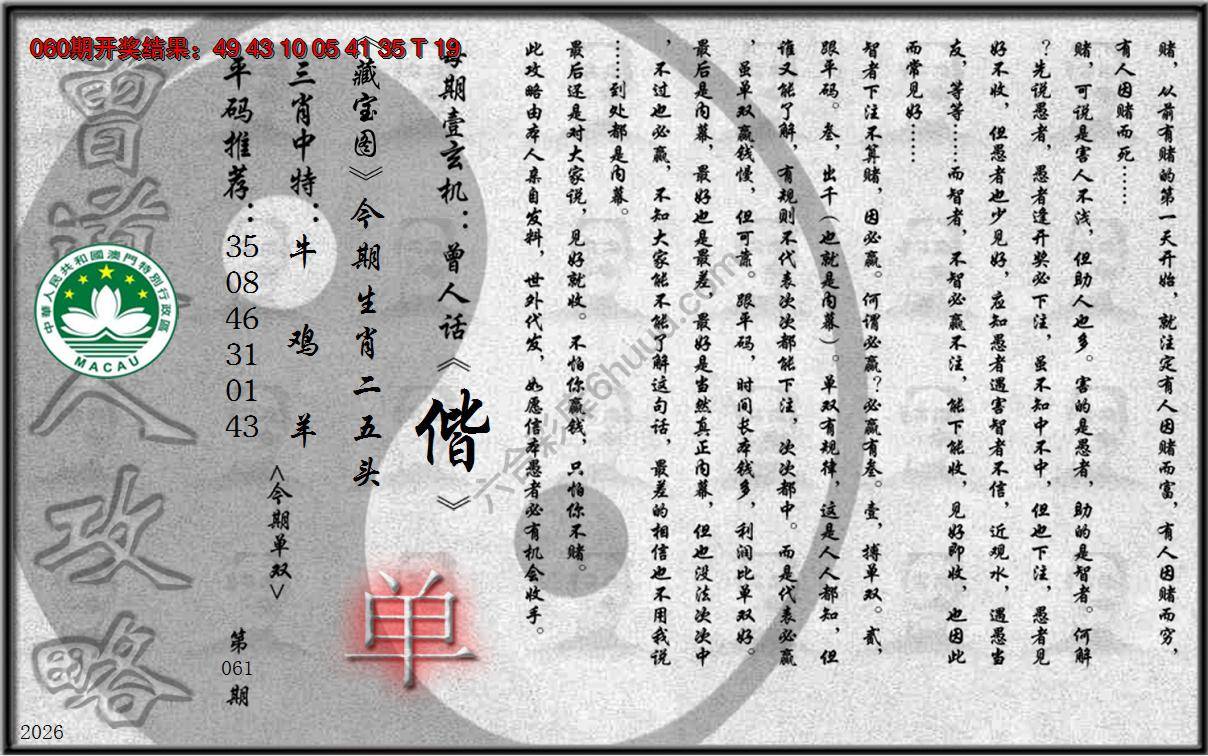 060期开奖结果：49 43 10 05 41 35 T 19
赌，从前有赌的第一天开始，就注定有人因赌而富，有人因赌而穷，
有人因赌而死……
赌，可说是害人不浅，但助人也多。害的是愚者，助的是智者。何解
？先说愚者，愚者逢开奖必下注，虽不知中不中，但也下注，愚者见
好不收，但愚者也少见好，应知愚者遇害智者不信，近观水，遇愚当
友，等等……而智者，不智必赢不注，能下能收，见好即收，也因此
而常见好……
智者下注不算赌，因必赢。何谓必赢？必赢有叁。壹，搏单双。贰，
跟平码。叁，出千（也就是内幕）。单双有规律，这是人人都知，但
谁又能了解，有规则不代表次次都能下注，次次都中。而是代表必赢
，虽单双赢钱慢，但可靠。跟平码，时间长本钱多，利润比单双好。
最后是内幕，最好也是最差，最好是当然真正内幕，但也没法次次中
，不过也必赢，不知大家能不能了解这句话，最差的相信也不用我说
……到处都是内幕。
最后还是对大家说，见好就收。不怕你赢钱，只怕你不赌。
此攻略由本人亲自发料，世外代发，如愿信本愚者必有机会收手。
每期壹玄机：曾人话《偕》
《藏宝图》今期生肖二五头
三肖中特：牛鸡羊
平码推荐：
35
08
46
31
01
43
<今期单双>
单
第
061
期
曾道人攻略
中華人民共和國澳門特別行政區
MACAU
六合彩票6huuu.com
2026